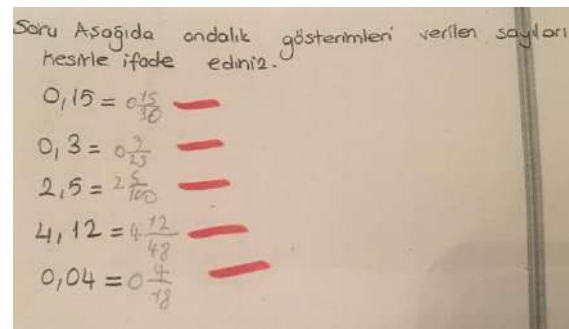 Soru Aşağıda ondalık gösterimleri verilen sayıları
kesirle ifade ediniz.
0,15 = 0 15/30
0,3 = 0 3/25
2,5 = 2 5/100
4,12 = 4 12/48
0,04 = 0 4/18